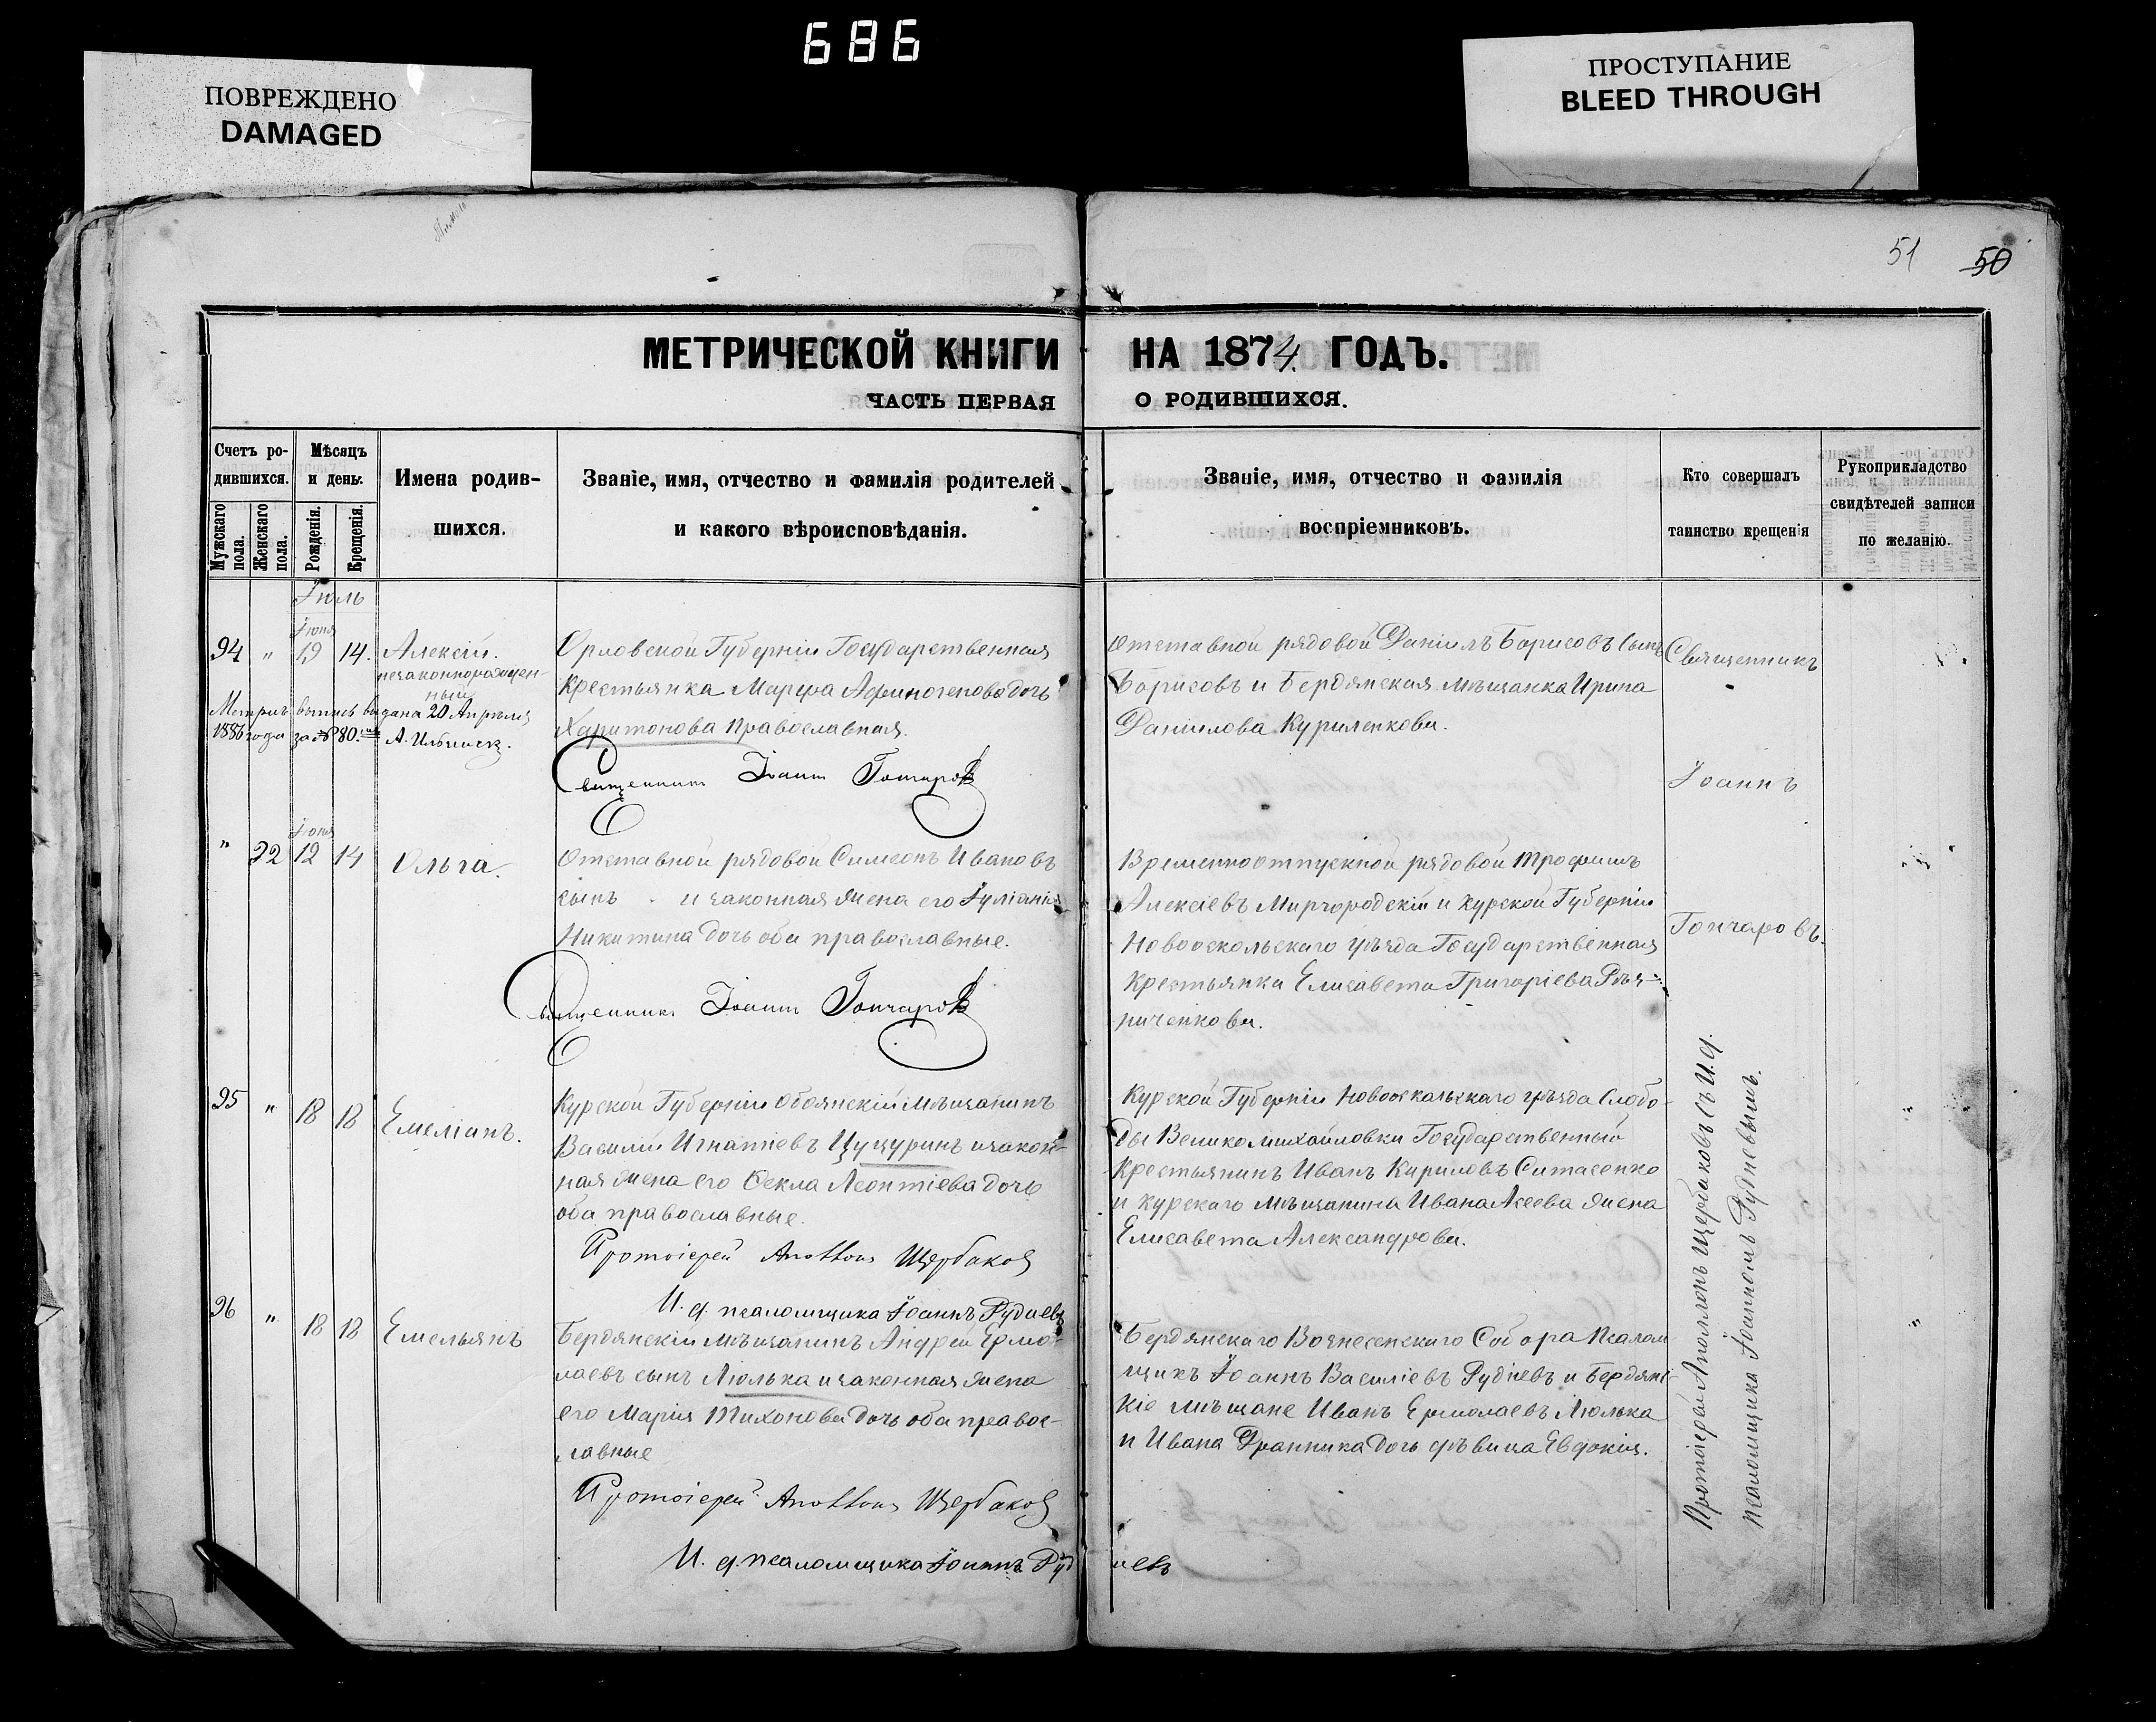 686
ПОВРЕЖДЕНО
DAMAGED
ПРОСТУПАНИЕ
BLEED THROUGH
51 50
МЕТРИЧЕСКОЙ КНИГИ НА 1874 ГОДЪ.
ЧАСТЬ ПЕРВАЯ О РОДИВШИХСЯ.
Счетъ ро-
дившихся.
Мужскаго пола.
Женскаго пола.
Мѣсяцъ
и день.
Рожденія.
Крещенія.
Имена родив-
шихся.
Званіе, имя, отчество и фамилія родителей
и какого вѣроисповѣданія.
Званіе, имя, отчество и фамилія
воспріемниковъ.
Кто совершалъ
таинство крещенія
Рукоприкладство
свидѣтелей записи
по желанію.
Іюль
Іюня
94 " 19 14. Алексій.
незаконнорожден-
ный
Метрич. выпись выдана 20 Апрѣля
1886 года за № 80.
Орловской Губерніи Государственная
крестьянка Марфа Афиногенова дочь
Харитонова православная.
Священникъ Іоаннъ Гончаровъ
Отставной рядовой Даніилъ Борисовъ сынъ
Борисовъ и Бердянская мѣщанка Ирина
Даніилова Куриленкова.
Священникъ
Іоаннъ
Гончаровъ.
Іюня
" 92 12 14 Ольга.
Отставной рядовой Симеонъ Ивановъ
сынъ и законная жена его Іуліанія
Никитина дочь оба православные.
Священникъ Іоаннъ Гончаровъ
Временноотпускной рядовой Трофимъ
Алексіевъ Миргородскій и Курской Губерніи
Новооскольскаго уѣзда Государственная
крестьянка Елисавета Григоріева
риченкова.
95 " 18 18 Емеліанъ.
Курской Губерніи Обоянскій мѣщанинъ
Василій Игнатіевъ Цуцуринъ и закон-
ная жена его Фекла Леонтіева дочь
оба православные.
Протоіерей Аполлонъ Щербаковъ
И. д. псаломщика Іоаннъ Рудневъ
Курской Губерніи Новооскальскаго уѣзда Слобо-
ды Великомихайловки Государственный
крестьянинъ Иванъ Кириловъ Ситасенко
и Курскаго мѣщанина Ивана Асеева жена
Елисавета Александрова.
96 " 18 18 Емельянъ
Бердянскій мѣщанинъ Андрей Ермо-
лаевъ сынъ Люлька и законная жена
его Марія Тихонова дочь оба правос-
лавные
Протоіерей Аполлонъ Щербаковъ
И. д. псаломщика Іоаннъ Рудневъ
Бердянскаго Вознесенскаго Собора Псалом
щикъ Іоаннъ Василіевъ Рудневъ и Бердянс-
кіе мѣщане Иванъ Ермолаевъ Люлька
и Ивана Францика дочь дѣвица Евдокія.
Протоіерей Аполлонъ Щербаковъ съ И. д.
псаломщика Іоанномъ Рудневымъ.